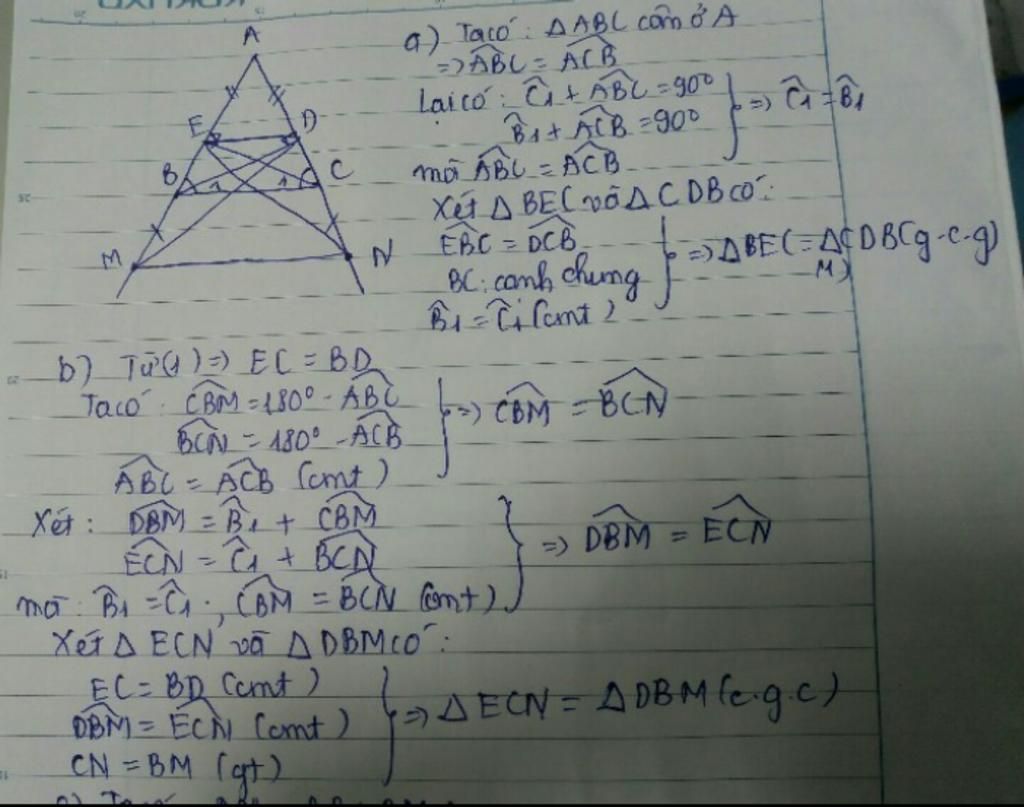 A
E D
B 1 1 C
M N
a) Ta có: ΔABC cân ở A
=> \widehat{ABC} = \widehat{ACB}
Lại có: \widehat{C1} + \widehat{ABC} = 90°
\widehat{B1} + \widehat{ACB} = 90° } => \widehat{C1} = \widehat{B1}
mà \widehat{ABC} = \widehat{ACB}
Xét Δ BEC và Δ CDB có:
\widehat{EBC} = \widehat{DCB}
BC: cạnh chung } => ΔBEC = ΔCDB (g-c-g)
\widehat{B1} = \widehat{C1} (cmt)
b) Từ (1) => EC = BD
Ta có: \widehat{CBM} = 180° - \widehat{ABC}
\widehat{BCN} = 180° - \widehat{ACB} } => \widehat{CBM} = \widehat{BCN}
\widehat{ABC} = \widehat{ACB} (cmt)
Xét: \widehat{DBM} = \widehat{B1} + \widehat{CBM}
\widehat{ECN} = \widehat{C1} + \widehat{BCN} } => \widehat{DBM} = \widehat{ECN}
mà: \widehat{B1} = \widehat{C1}, \widehat{CBM} = \widehat{BCN} (cmt)
Xét Δ ECN và Δ DBM có:
EC = BD (cmt)
\widehat{DBM} = \widehat{ECN} (cmt) } => Δ ECN = Δ DBM (c.g.c)
CN = BM (gt)